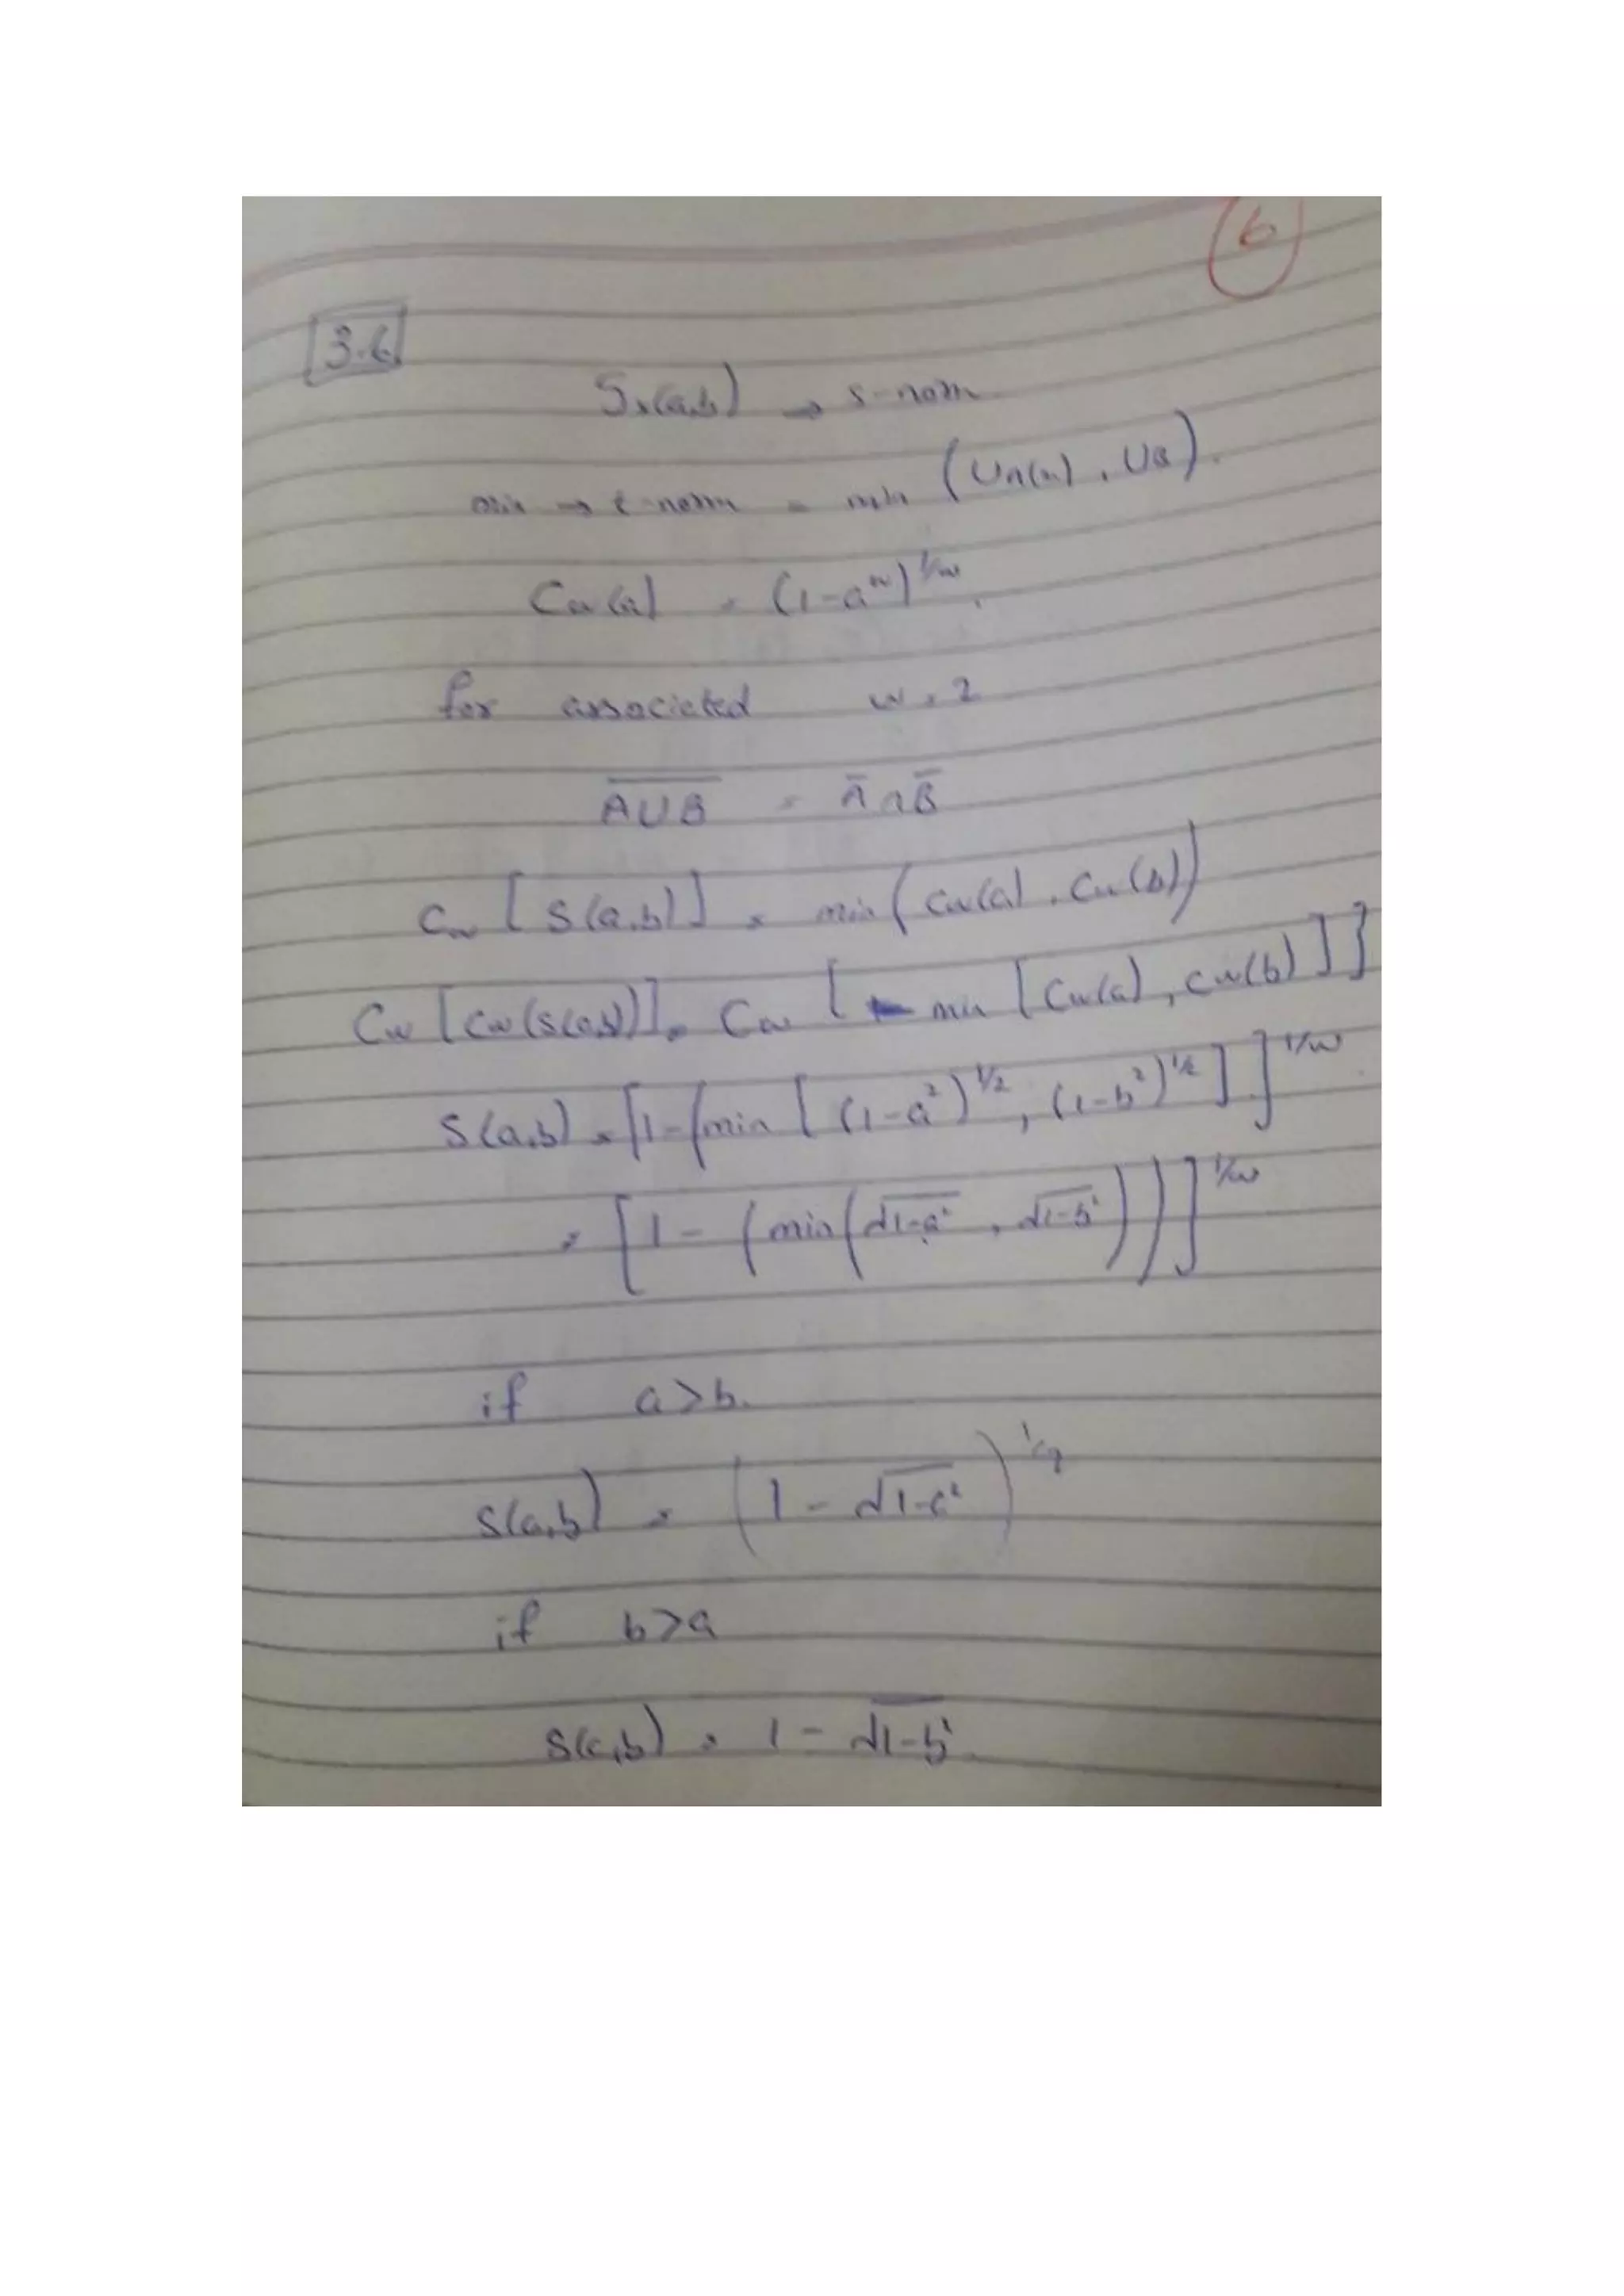 6
3.6
S₁(a,b) → s-norm
min → t-norm = min (UA(x), UB).
Cw(a) = (1-a^w)^1/w.
for associated w = 2
A̅ ̅U̅ ̅B̅ = A̅ ∩ B̅
Cw [S(a,b)] = min (Cw(a), Cw(b))
Cw [Cw(S(a,b))] = Cw [min [Cw(a), Cw(b)]]
S(a,b) = [1-(min [(1-a²)^1/2, (1-b²)^1/2]]^1/w
= [1-(min(√1-a², √1-b²))]^1/w
if a>b.
S(a,b) = (1-√1-a²)^1/2
if b>a
S(a,b) = 1-√1-b²